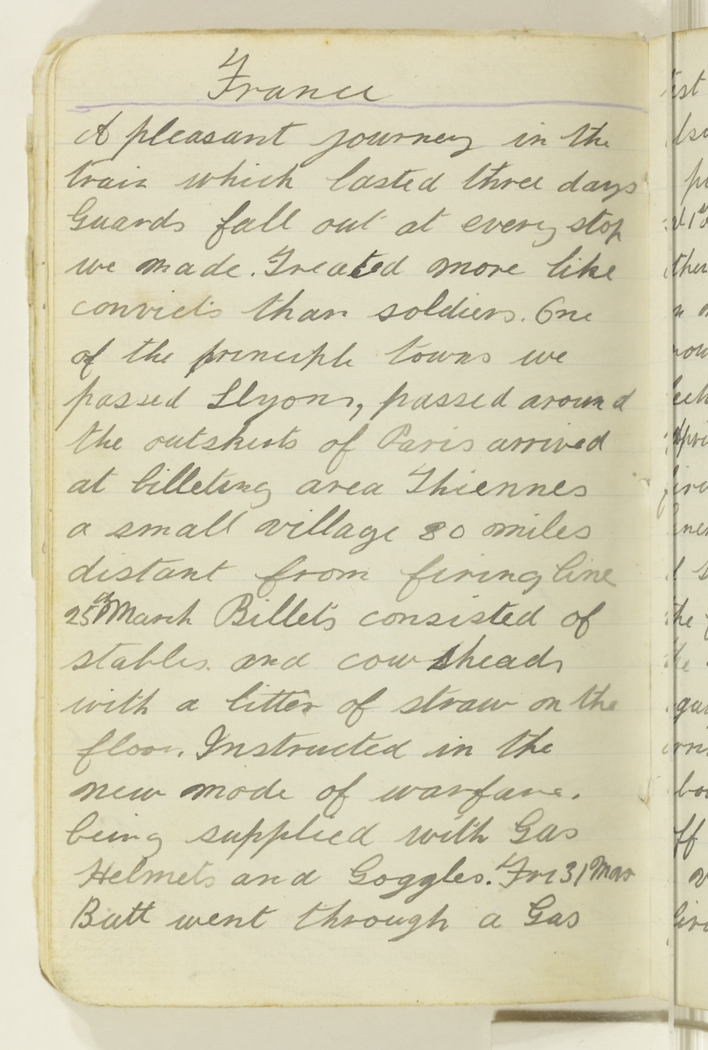 France
A pleasant journey in the
train which lasted three days
Guards fall out at every stop
we made. Treated more like
convicts than soldiers. One
of the principle towns we
passed Llyons, passed around
the outskirts of Paris arrived
at billeting area Thiennes
a small village 30 miles
distant from firing line
25th March Billets consisted of
stables and cow sheads
with a litter of straw on the
floor. Instructed in the
new mode of warfare.
being supplied with Gas
Helmets and Goggles. Fri 31 Mar
Batt went through a Gas